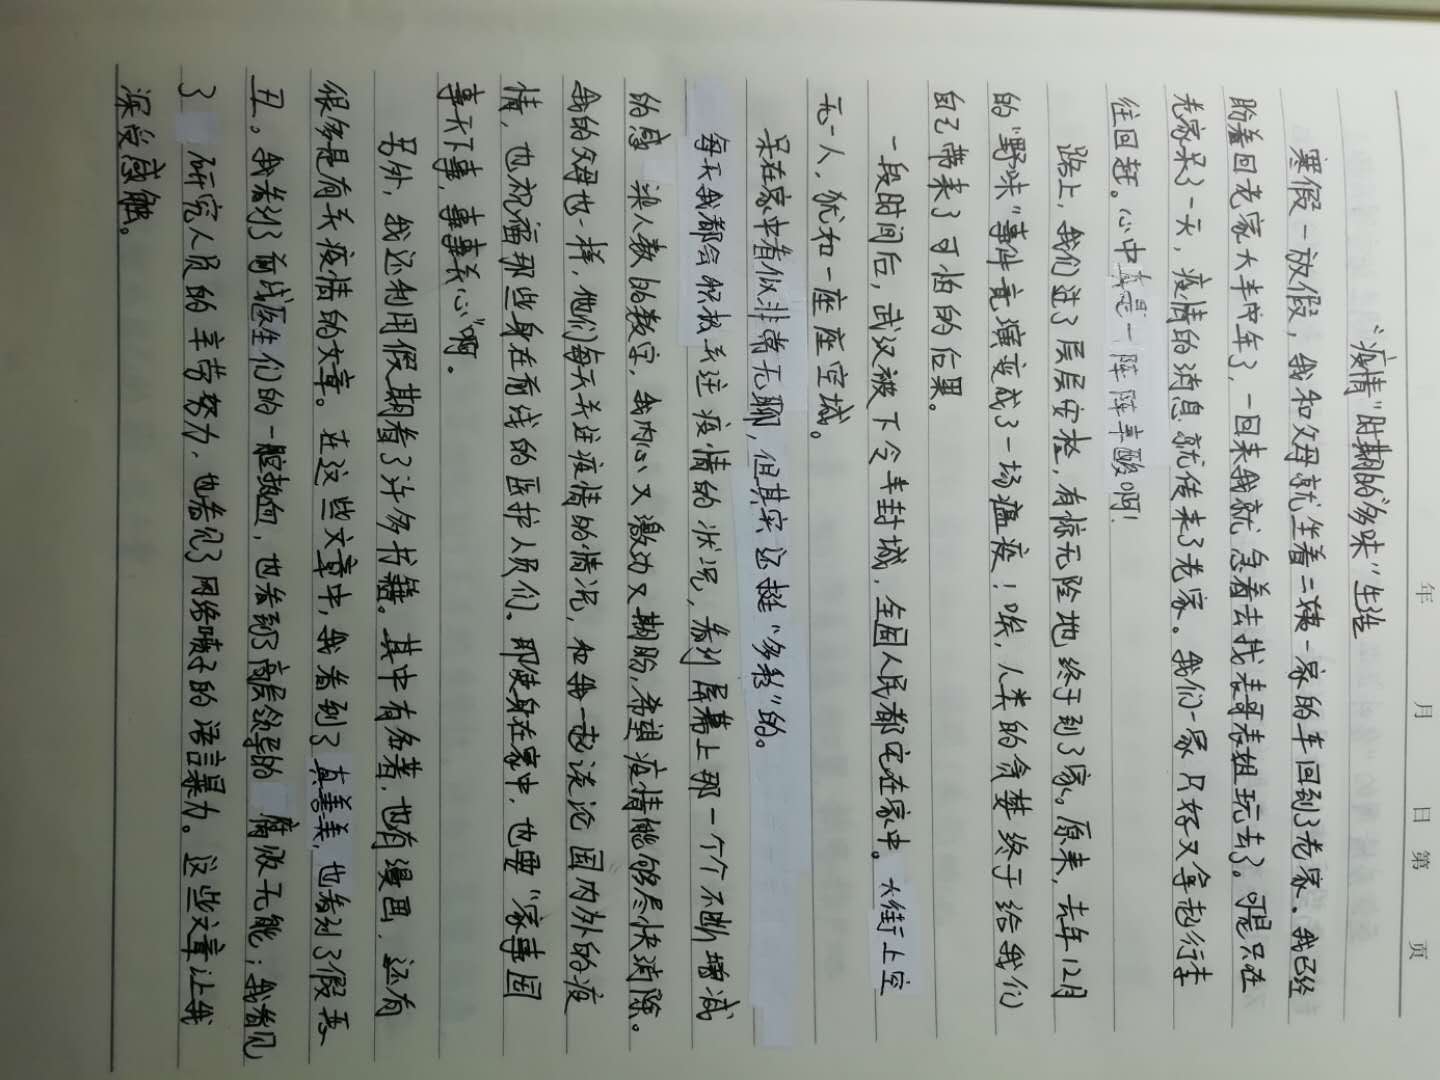 年 月 日 第 页
“疫情”时期的“多味”生活
寒假一放假，我和父母就坐着二姨一家的车回到了老家。我已经
盼着回老家大半年了，一回来我就急着去找表哥表姐玩去了。可是只在
老家呆了一天，疫情的消息就传来了老家。我们一家只好又拿起行李
往回赶。心中真是一阵阵辛酸啊！
路上，我们进了层层安检，有惊无险地终于到了家。原来，去年12月
的“野味”事件竟演变成了一场瘟疫！唉，人类的贪婪终于给我们
自己带来了可怕的后果。
一段时间后，武汉被下令车封城，全国人民都宅在家中。大街上空
无一人，犹如一座座空城。
呆在家中看似非常无聊，但其实还挺“多彩”的。
每天我都会积极关注疫情的状况，看到屏幕上那一个个不断增减
的感 染人数的数字，我内心又激动又期盼，希望疫情能够尽快消除。
我的父母也一样，他们每天关注疫情的情况，和我一起谈论国内外的疫
情，也祝福那些身在前线的医护人员们。即使身在家中，也要“家事国
事天下事，事事关心”啊。
另外，我还利用假期看了许多书籍。其中有名著，也有漫画，还有
很多是有关疫情的文章。在这些文章中，我看到了真善美，也看到了假恶
丑。我看到了前线医生们的一腔热血，也看到了高层领导的 腐败无能；我看见
了 研究人员的辛劳努力，也看见了网络喷子的语言暴力。这些文章让我
深受感触。